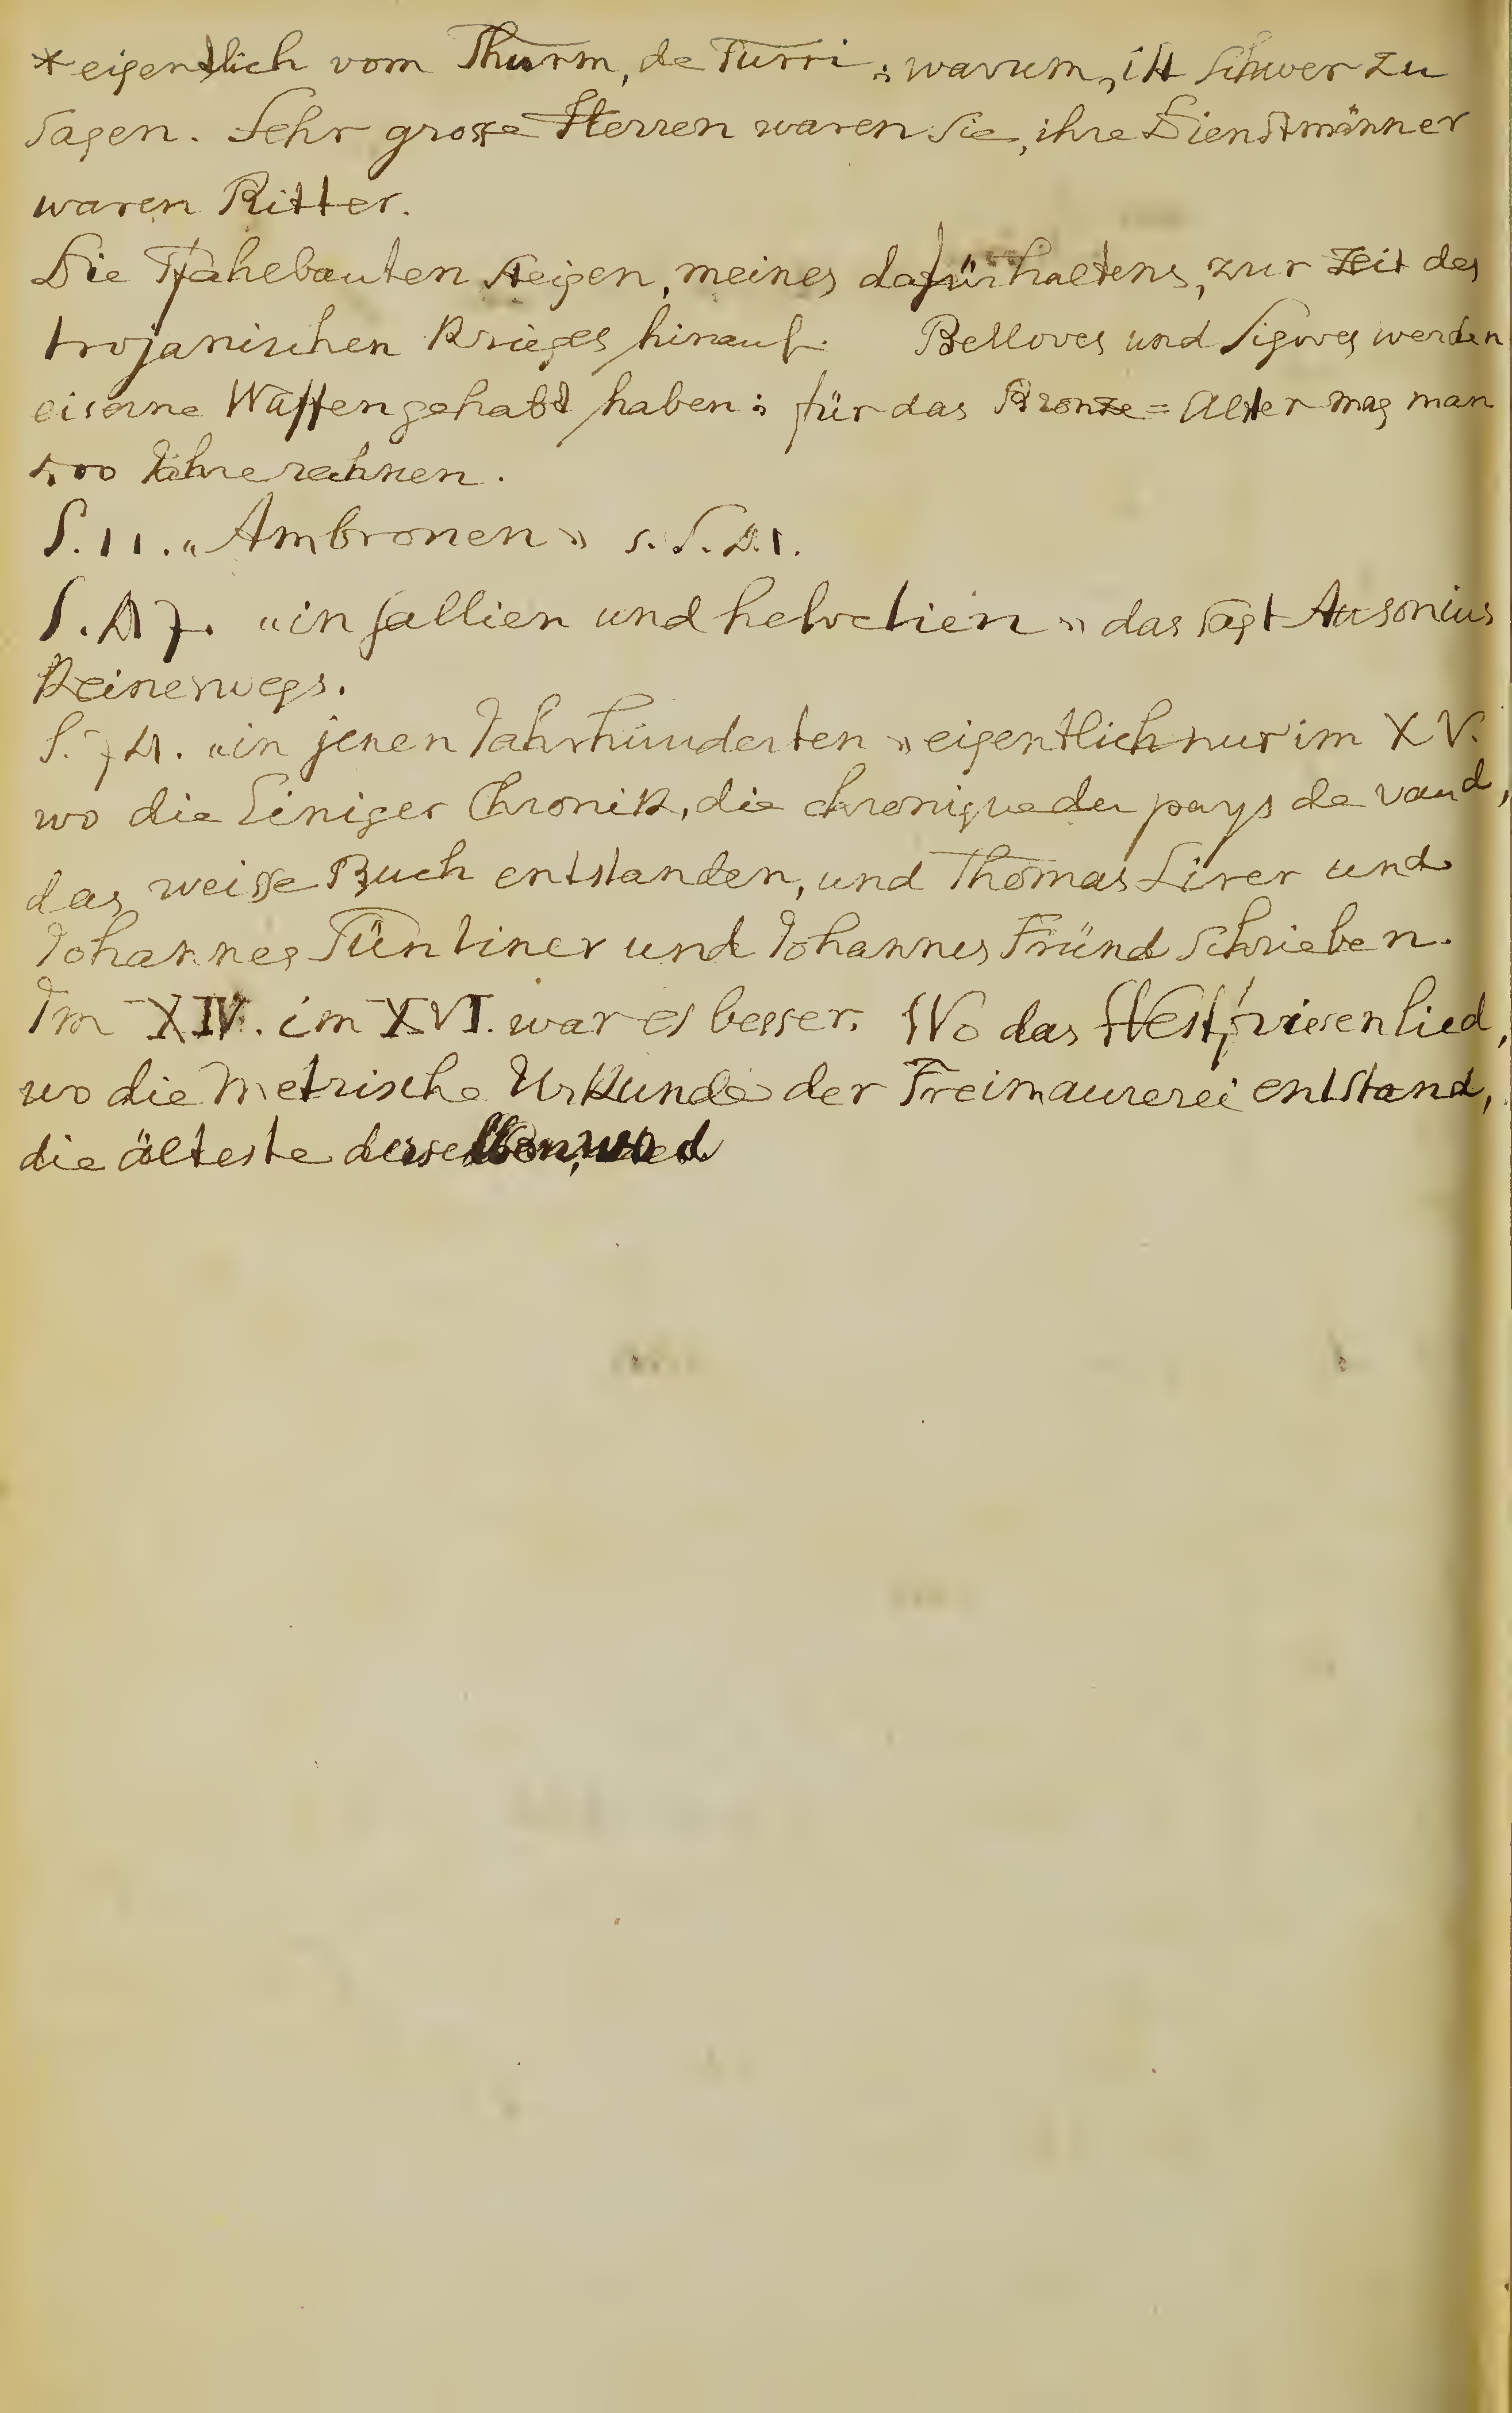 *eigentlich vom Thurm, de Turri; warum, ist schwer zu
sagen. Sehr grosse Herren waren sie, ihre Dienstmänner
waren Ritter.
Die Pfahebauten steigen, meines dafürhaltens, zur Zeit des
trojanischen Krieges hinauf. Belloves und Sigoves werden
eiserne Waffen gehabt haben; für das Bronze=Alter mag man
500 Jahre rechnen.
S. 11. «Ambronen» s. S. 21.
S. 27. «in gallien und helvetien» das sagt Ausonius
Keineswegs.
S. 72. «in jenen Jahrhunderten» eigentlich nur im XV.
wo die Einiger Chronik, die chronique du pays de vaud,
das weisse Buch entstanden, und Thomas Lirer und
Johannes Püntiner und Johannes Fründ schrieben.
Im XIV. im XVI. war es besser. Wo das Westfriesenlied,
wo die metrische Urkunde der Freimaurerei entstand,
die älteste derselben,